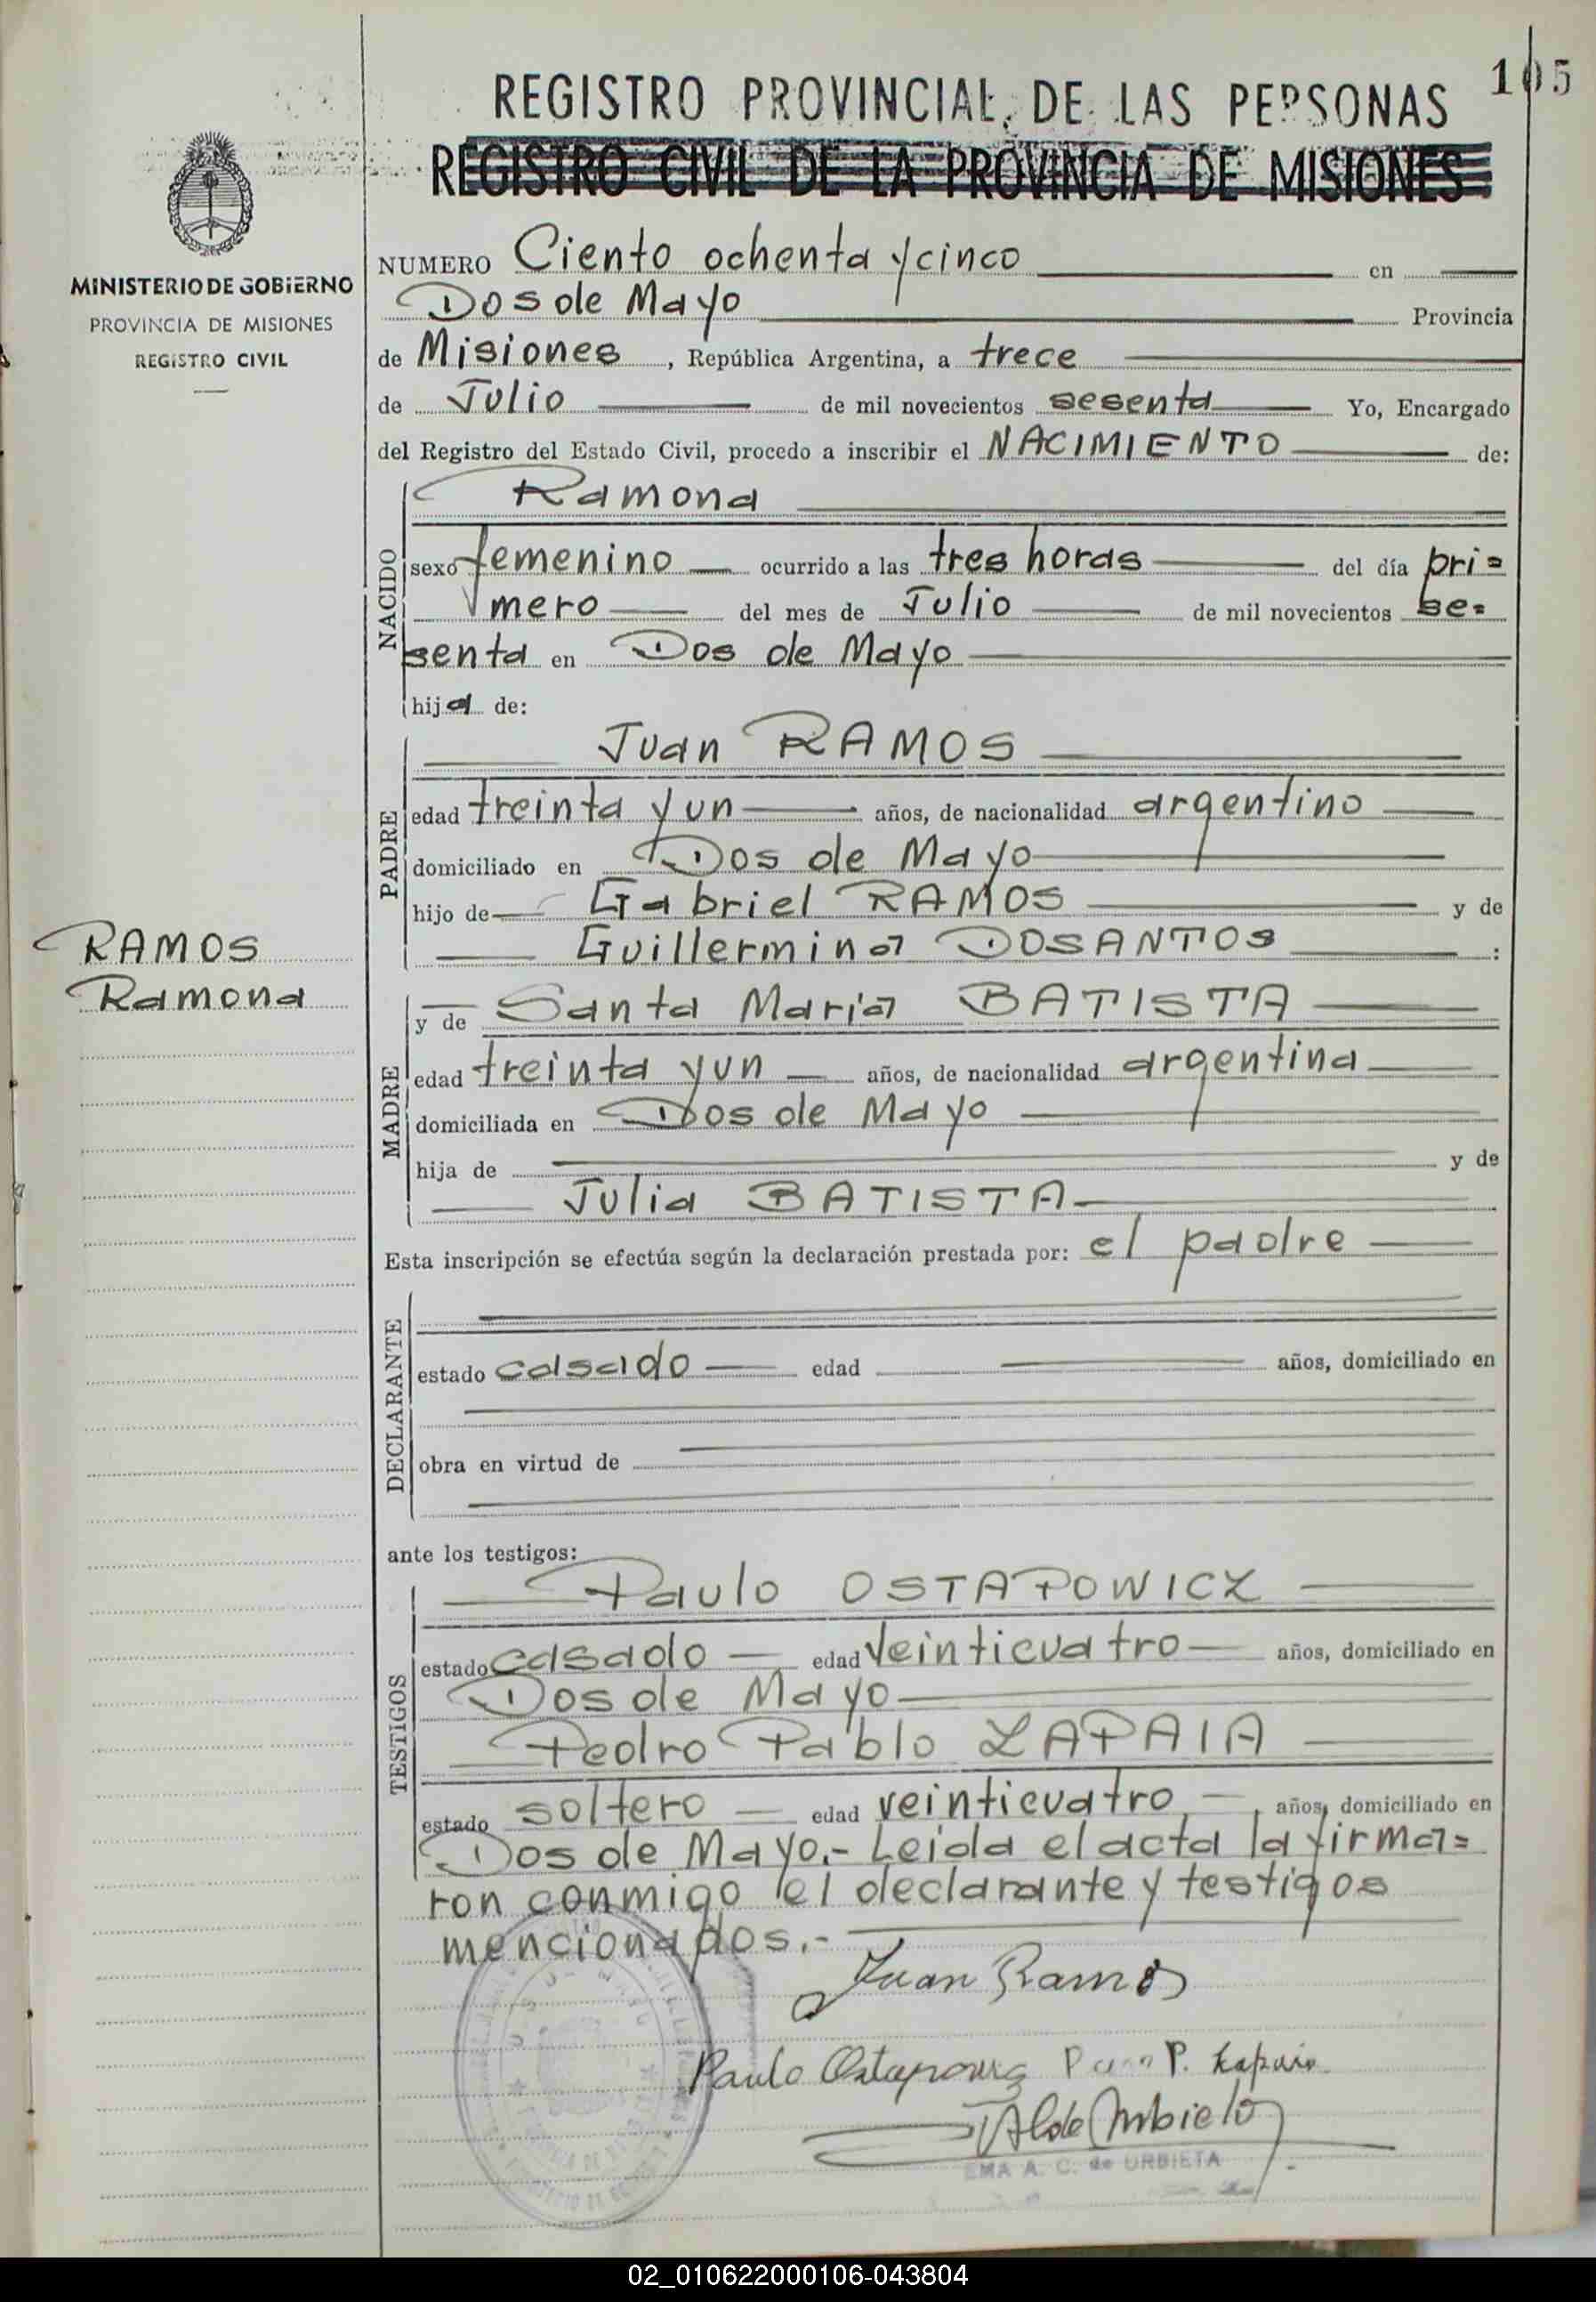 105
REGISTRO PROVINCIAL DE LAS PERSONAS
REGISTRO CIVIL DE LA PROVINCIA DE MISIONES
MINISTERIO DE GOBIERNO
PROVINCIA DE MISIONES
REGISTRO CIVIL
NUMERO Ciento ochenta y cinco en
Dos de Mayo Provincia
de Misiones, República Argentina, a trece
de Julio de mil novecientos sesenta Yo, Encargado
del Registro del Estado Civil, procedo a inscribir el NACIMIENTO de:
NACIDO
Ramona
sexo femenino ocurrido a las tres horas del día pri=
mero del mes de Julio de mil novecientos se=
senta en Dos de Mayo
hija de:
PADRE
Juan RAMOS
edad treinta y un años, de nacionalidad argentino
domiciliado en Dos de Mayo
hijo de Gabriel RAMOS y de
Guillermina DOSANTOS :
RAMOS
Ramona
MADRE
y de Santa Maria BATISTA
edad treinta y un años, de nacionalidad argentina
domiciliada en Dos de Mayo
hija de y de
Julia BATISTA
Esta inscripción se efectúa según la declaración prestada por: el padre
DECLARANTE
estado casado edad años, domiciliado en
obra en virtud de
ante los testigos:
TESTIGOS
Paulo OSTAPOWICZ
estado casado edad veinticuatro años, domiciliado en
Dos de Mayo
Pedro Pablo ZAPAIA
estado soltero edad veinticuatro, años, domiciliado en
Dos de Mayo.- Leida el acta la firma=
ron conmigo el declarante y testigos
mencionados.-
Juan Ramos
Paulo P.
EMA A. C. de URBIETA
02_010622000106-043804